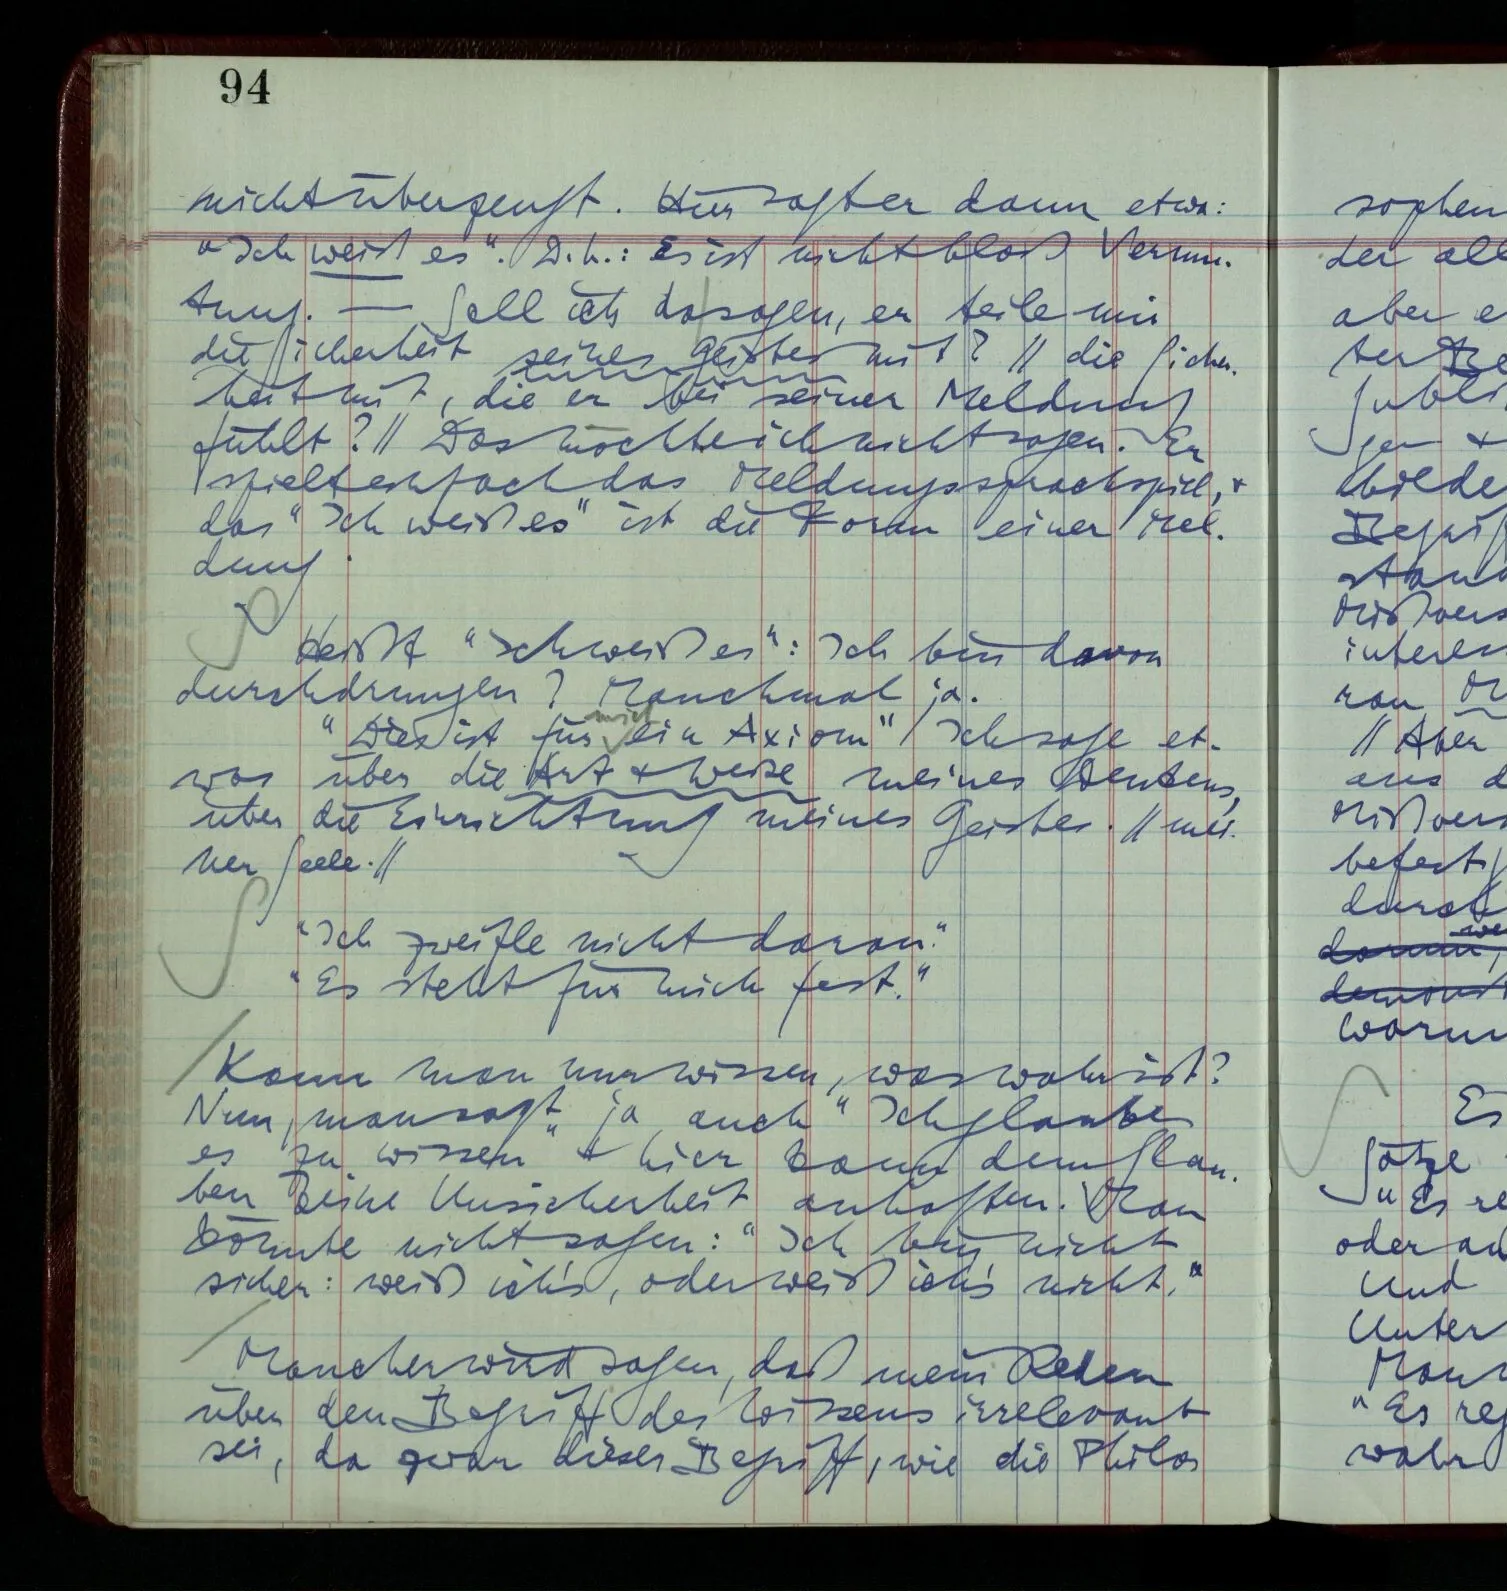 94
nicht überzeugt. Hier sagt er dann etwa:
"Ich weiß es". D.h.: Es ist nicht bloß Vermu-
tung. — Soll ich da sagen, er teile mir
die Sicherheit seines Geistes mit? // die Sicher-
heit mit, die er bei seiner Meldung
fühlt? // Das möchte ich nicht sagen. Er
spielt einfach das Meldungssprachspiel, +
das "Ich weiß es" ist die Form einer Mel-
dung.
Heißt "Ich weiß es": Ich bin davon
durchdrungen? Manchmal ja.
"Dies ist für mich ein Axiom" Ich sage et-
was über die Art + Weise meines Denkens,
über die Einrichtung meines Geistes. // mei-
ner Seele. //
"Ich zweifle nicht daran."
"Es steht für mich fest."
Kann man nur wissen, was wahr ist?
Nun, man sagt ja auch "Ich glaube
es zu wissen" + hier kann dem Glau-
ben keine Unsicherheit anhaften. Man
könnte nicht sagen: "Ich bin nicht
sicher: weiß ich's, oder weiß ich's nicht."
Mancher wird sagen, daß mein Reden
über den Begriff des Wissens irrelevant
sei, da zwar dieser Begriff, wie die Philos
sophen
der all
aber e
Begrif
interes
// Aber
aus d
befest
durch
waru
Es
Götze
"Es re
oder au
Und
Unter
"Es reg
wahr